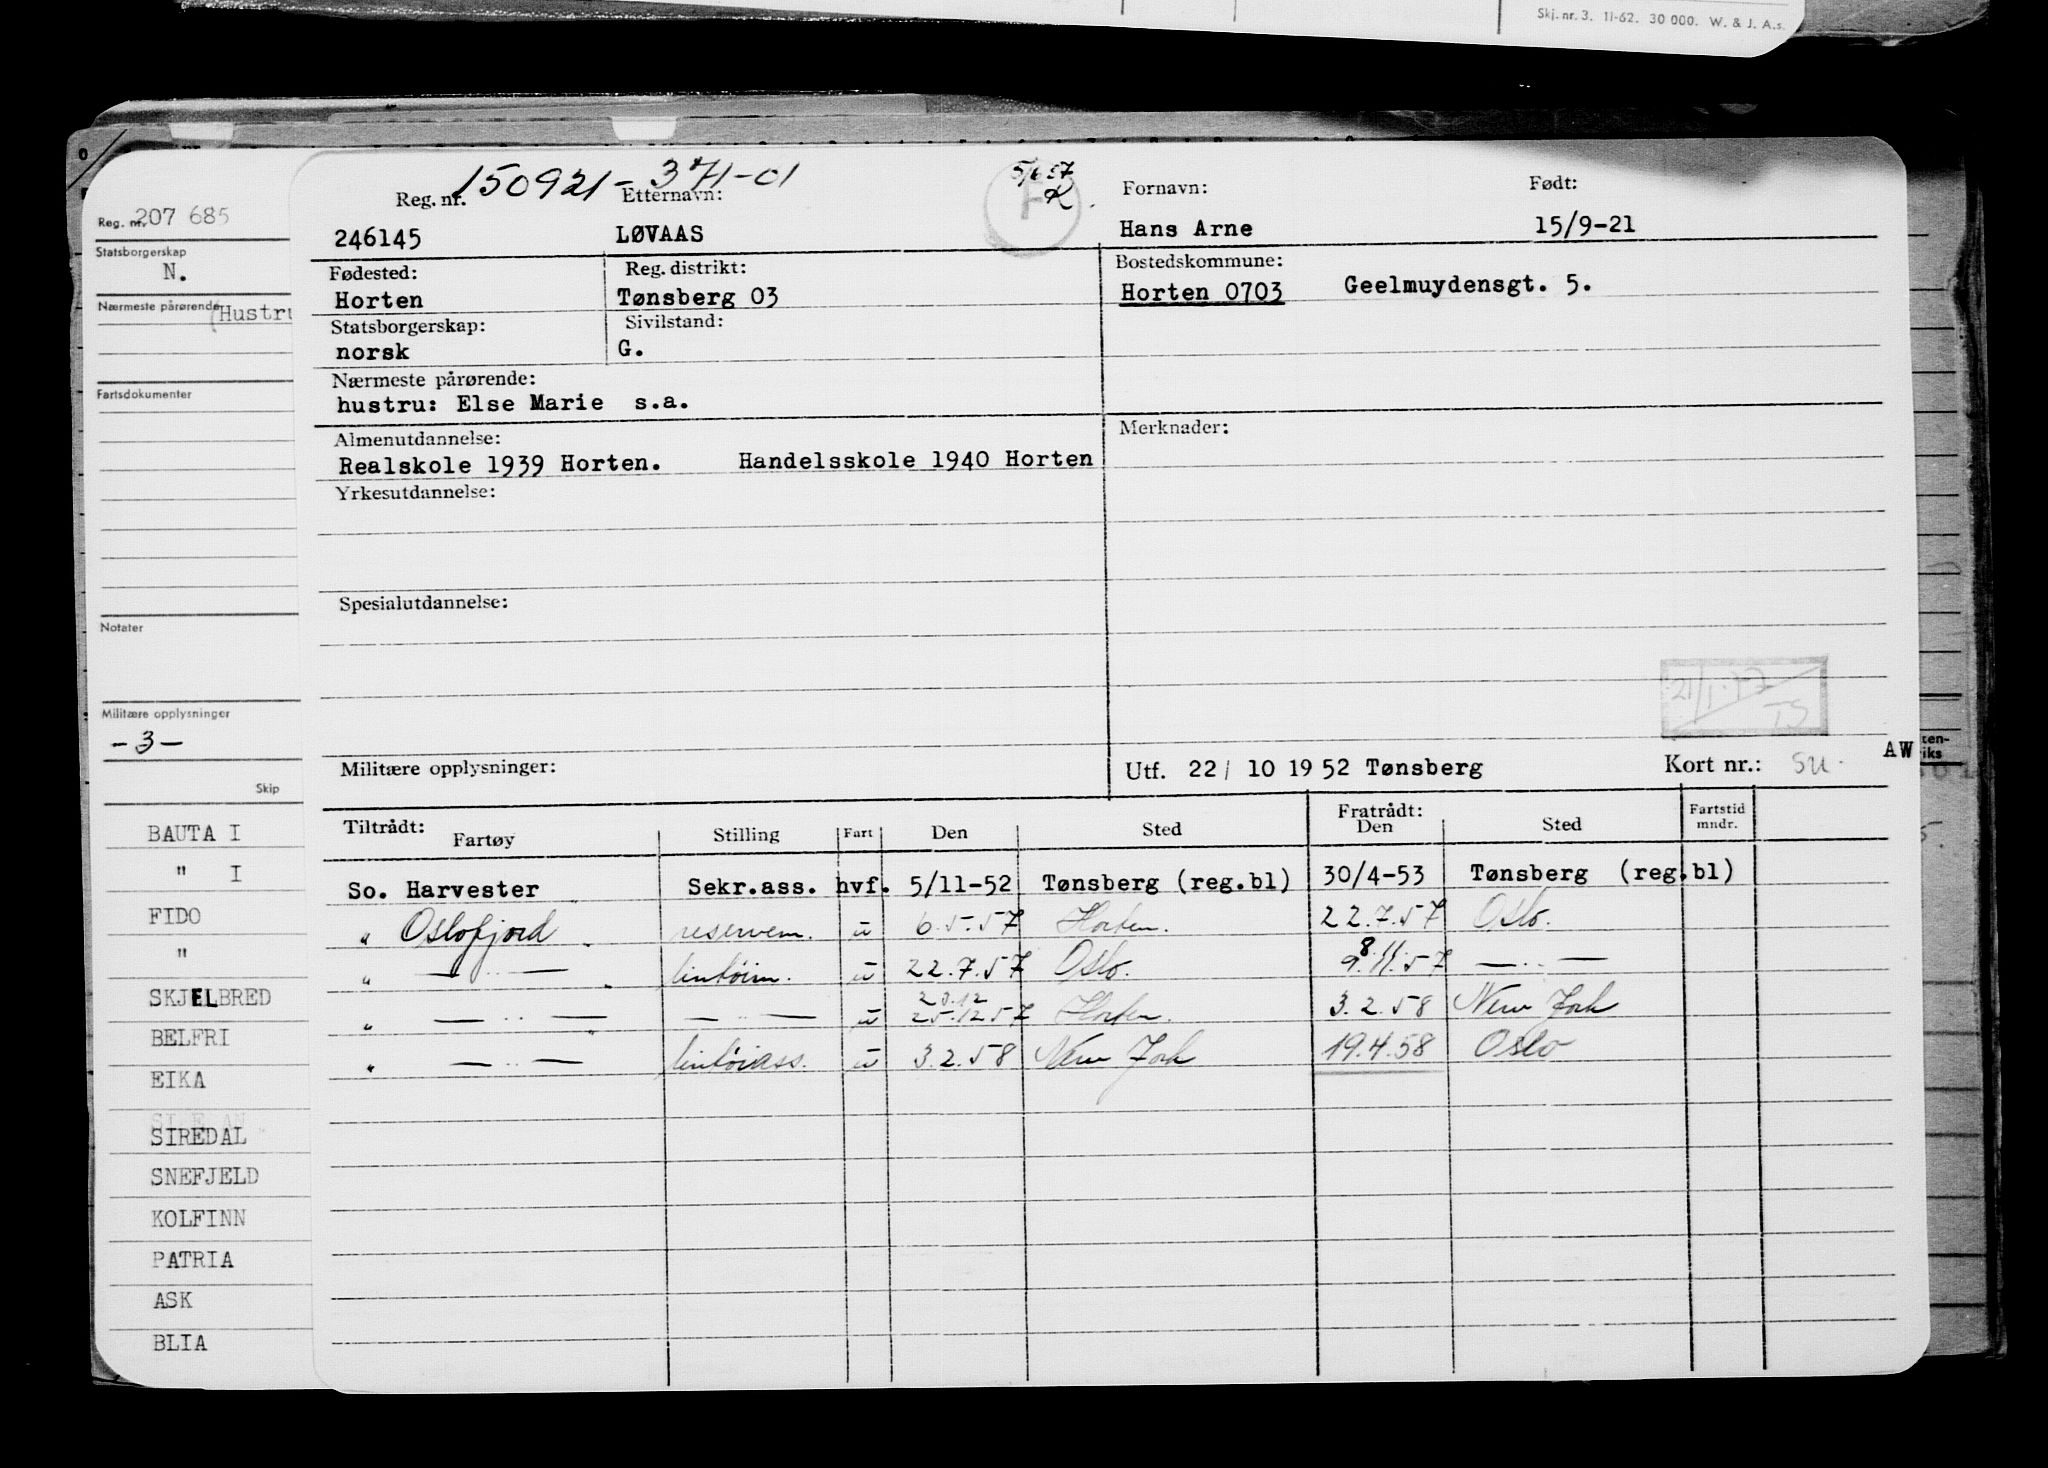 Skj. nr. 3. 11-62. 30 000. W. & J. A.s.
150921-371-01
5/6 57
K
Reg. nr. Etternavn: Fornavn: Født:
246145 LØVAAS Hans Arne 15/9-21
Fødested: Reg. distrikt: Bostedskommune:
Horten Tønsberg 03 Horten 0703 Geelmuydensgt. 5.
Statsborgerskap: Sivilstand:
norsk G.
Nærmeste pårørende:
hustru: Else Marie s.a.
Almenutdannelse: Merknader:
Realskole 1939 Horten. Handelsskole 1940 Horten
Yrkesutdannelse:
Spesialutdannelse:
TS
Militære opplysninger: Utf. 22/ 10 1952 Tønsberg Kort nr.: su. AW
Tiltrådt: Fratrådt:
Fartøy Stilling Fart Den Sted Den Sted Fartstid mndr.
So. Harvester Sekr.ass. hvf. 5/11-52 Tønsberg (reg.bl) 30/4-53 Tønsberg (reg.bl)
" Oslofjord reservem. u 6.5.57 Horten. 22.7.57 Oslo.
" — " — lintöim. u 22.7.57 Oslo. 8.11.57 — " —
" — " — — " — u 23.12 25.12 57 Horten. 3.2.58 New York
" — " — lintöiass. u 3.2.58 New York 19.4.58 Oslo
Reg. nr. 207 685
Statsborgerskap
N.
Nærmeste pårørende (Hustru
Fartsdokumenter
Notater
Militære opplysninger
-3-
Skip
BAUTA I
" I
FIDO
"
SKJELBRED
BELFRI
EIKA
SIREDAL
SNEFJELD
KOLFINN
PATRIA
ASK
BLIA